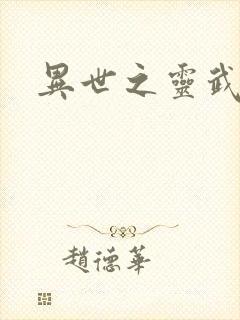 異世之靈武
趙德華